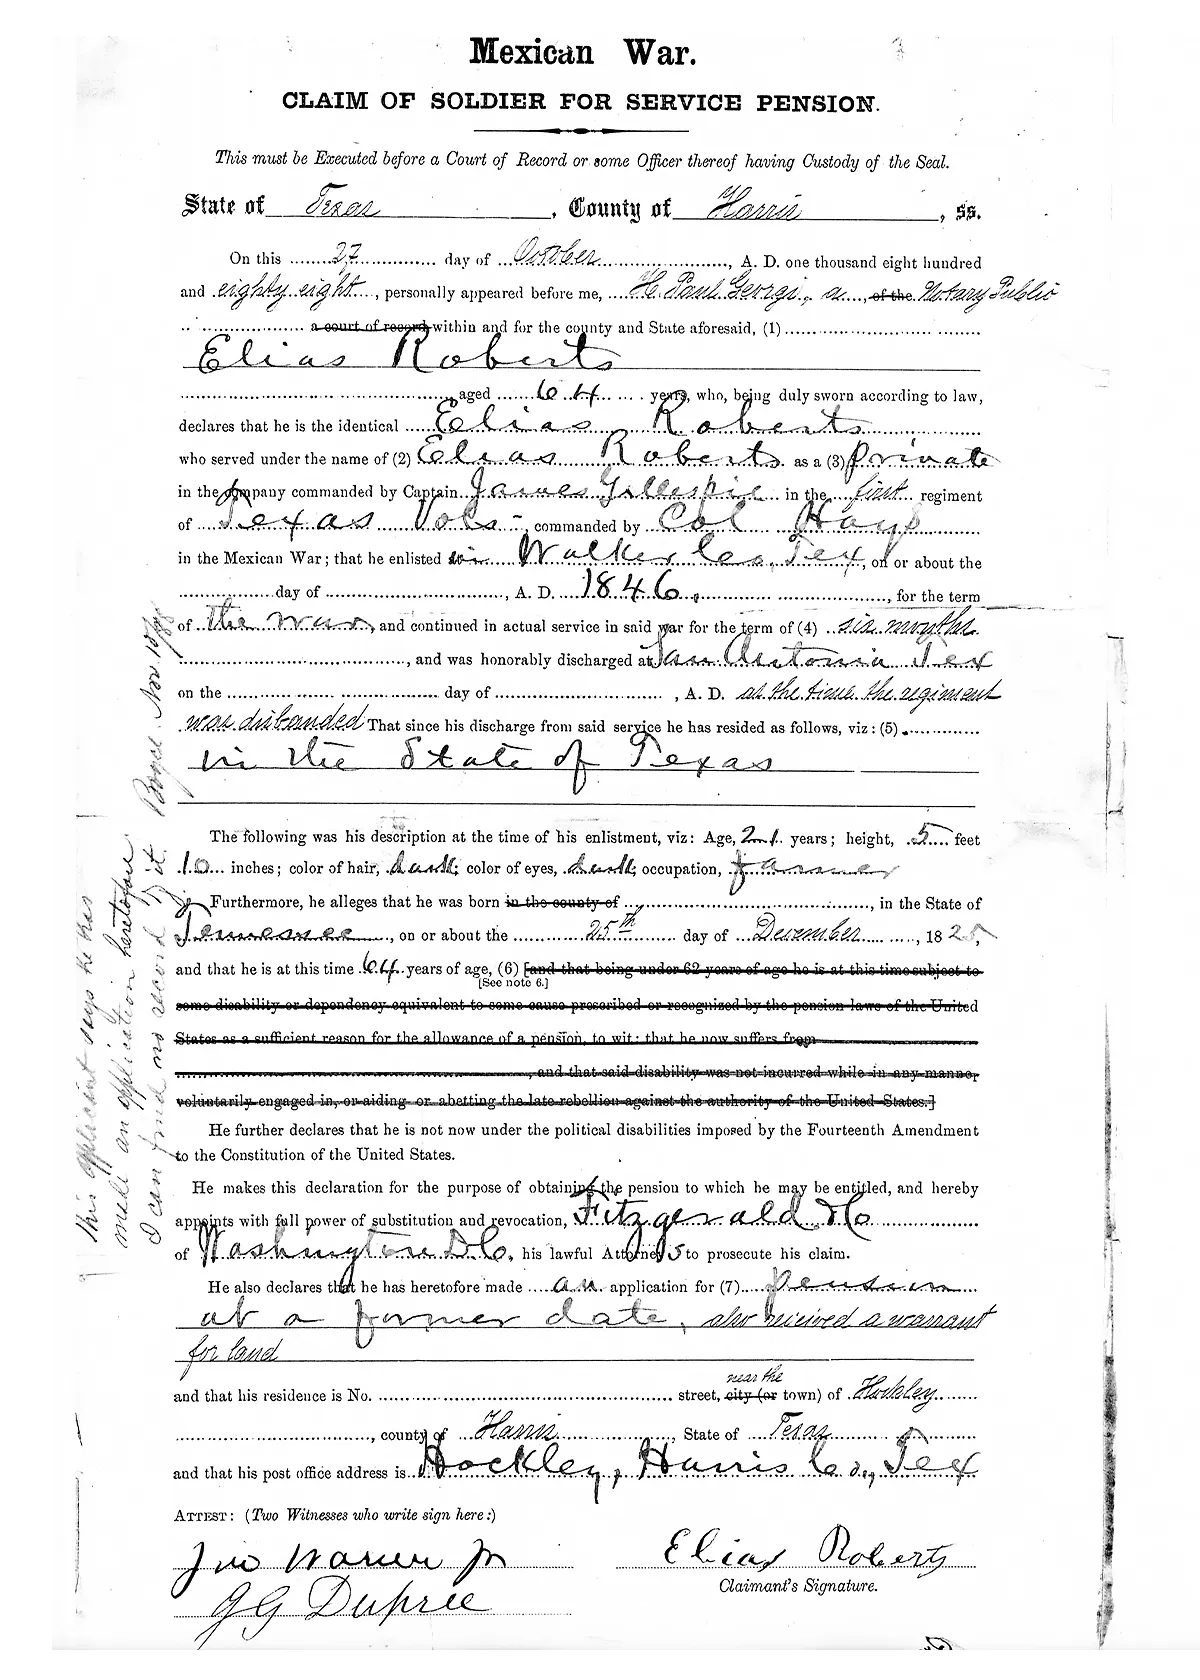 3
Mexican War.
CLAIM OF SOLDIER FOR SERVICE PENSION.
This must be Executed before a Court of Record or some Officer thereof having Custody of the Seal.
State of Texas, County of Harris, ss.
On this 27 day of October, A. D. one thousand eight hundred
and eighty eight, personally appeared before me, H. Paul Georgi, a of the Notary Public
a court of record within and for the county and State aforesaid, (1)
Elias Roberts
aged 64 years, who, being duly sworn according to law,
declares that he is the identical Elias Roberts
who served under the name of (2) Elias Roberts as a (3) private
in the company commanded by Captain James Gillespie in the first regiment
of Texas Vols, commanded by Col Hays
in the Mexican War; that he enlisted in Walker Co, Tex, on or about the
day of , A. D. 1846, , for the term
of the war, and continued in actual service in said war for the term of (4) six months
, and was honorably discharged at San Antonia Tex
on the day of , A. D. at the time the regiment
was disbanded That since his discharge from said service he has resided as follows, viz: (5)
in the State of Texas
The following was his description at the time of his enlistment, viz: Age, 21 years; height, 5 feet
10 inches; color of hair, dark; color of eyes, dark; occupation, farmer
Furthermore, he alleges that he was born in the county of , in the State of
Tennessee, on or about the 25th day of December, 1825,
and that he is at this time 64 years of age, (6) [and that being under 62 years of age he is at this time subject to
[See note 6.]
some disability or dependency equivalent to some cause prescribed or recognized by the pension laws of the United
States as a sufficient reason for the allowance of a pension, to wit: that he now suffers from
, and that said disability was not incurred while in any manner
voluntarily engaged in, or aiding or abetting the late rebellion against the authority of the United States.]
He further declares that he is not now under the political disabilities imposed by the Fourteenth Amendment
to the Constitution of the United States.
He makes this declaration for the purpose of obtaining the pension to which he may be entitled, and hereby
appoints with full power of substitution and revocation, Fitzgerald & Co
of Washington D.C., his lawful Attorneys to prosecute his claim.
He also declares that he has heretofore made an application for (7) pension
at a former date, also received a warrant
for land
near the
and that his residence is No. street, city (or town) of Hockley
, county of Harris, State of Texas
and that his post office address is Hockley, Harris Co., Tex
ATTEST: (Two Witnesses who write sign here:)
Jno Warren Jr
G G Dupree
Elias Roberts
Claimant's Signature.
This applicant says he has
made an application heretofore
I can find no record of it. Nov 10/88